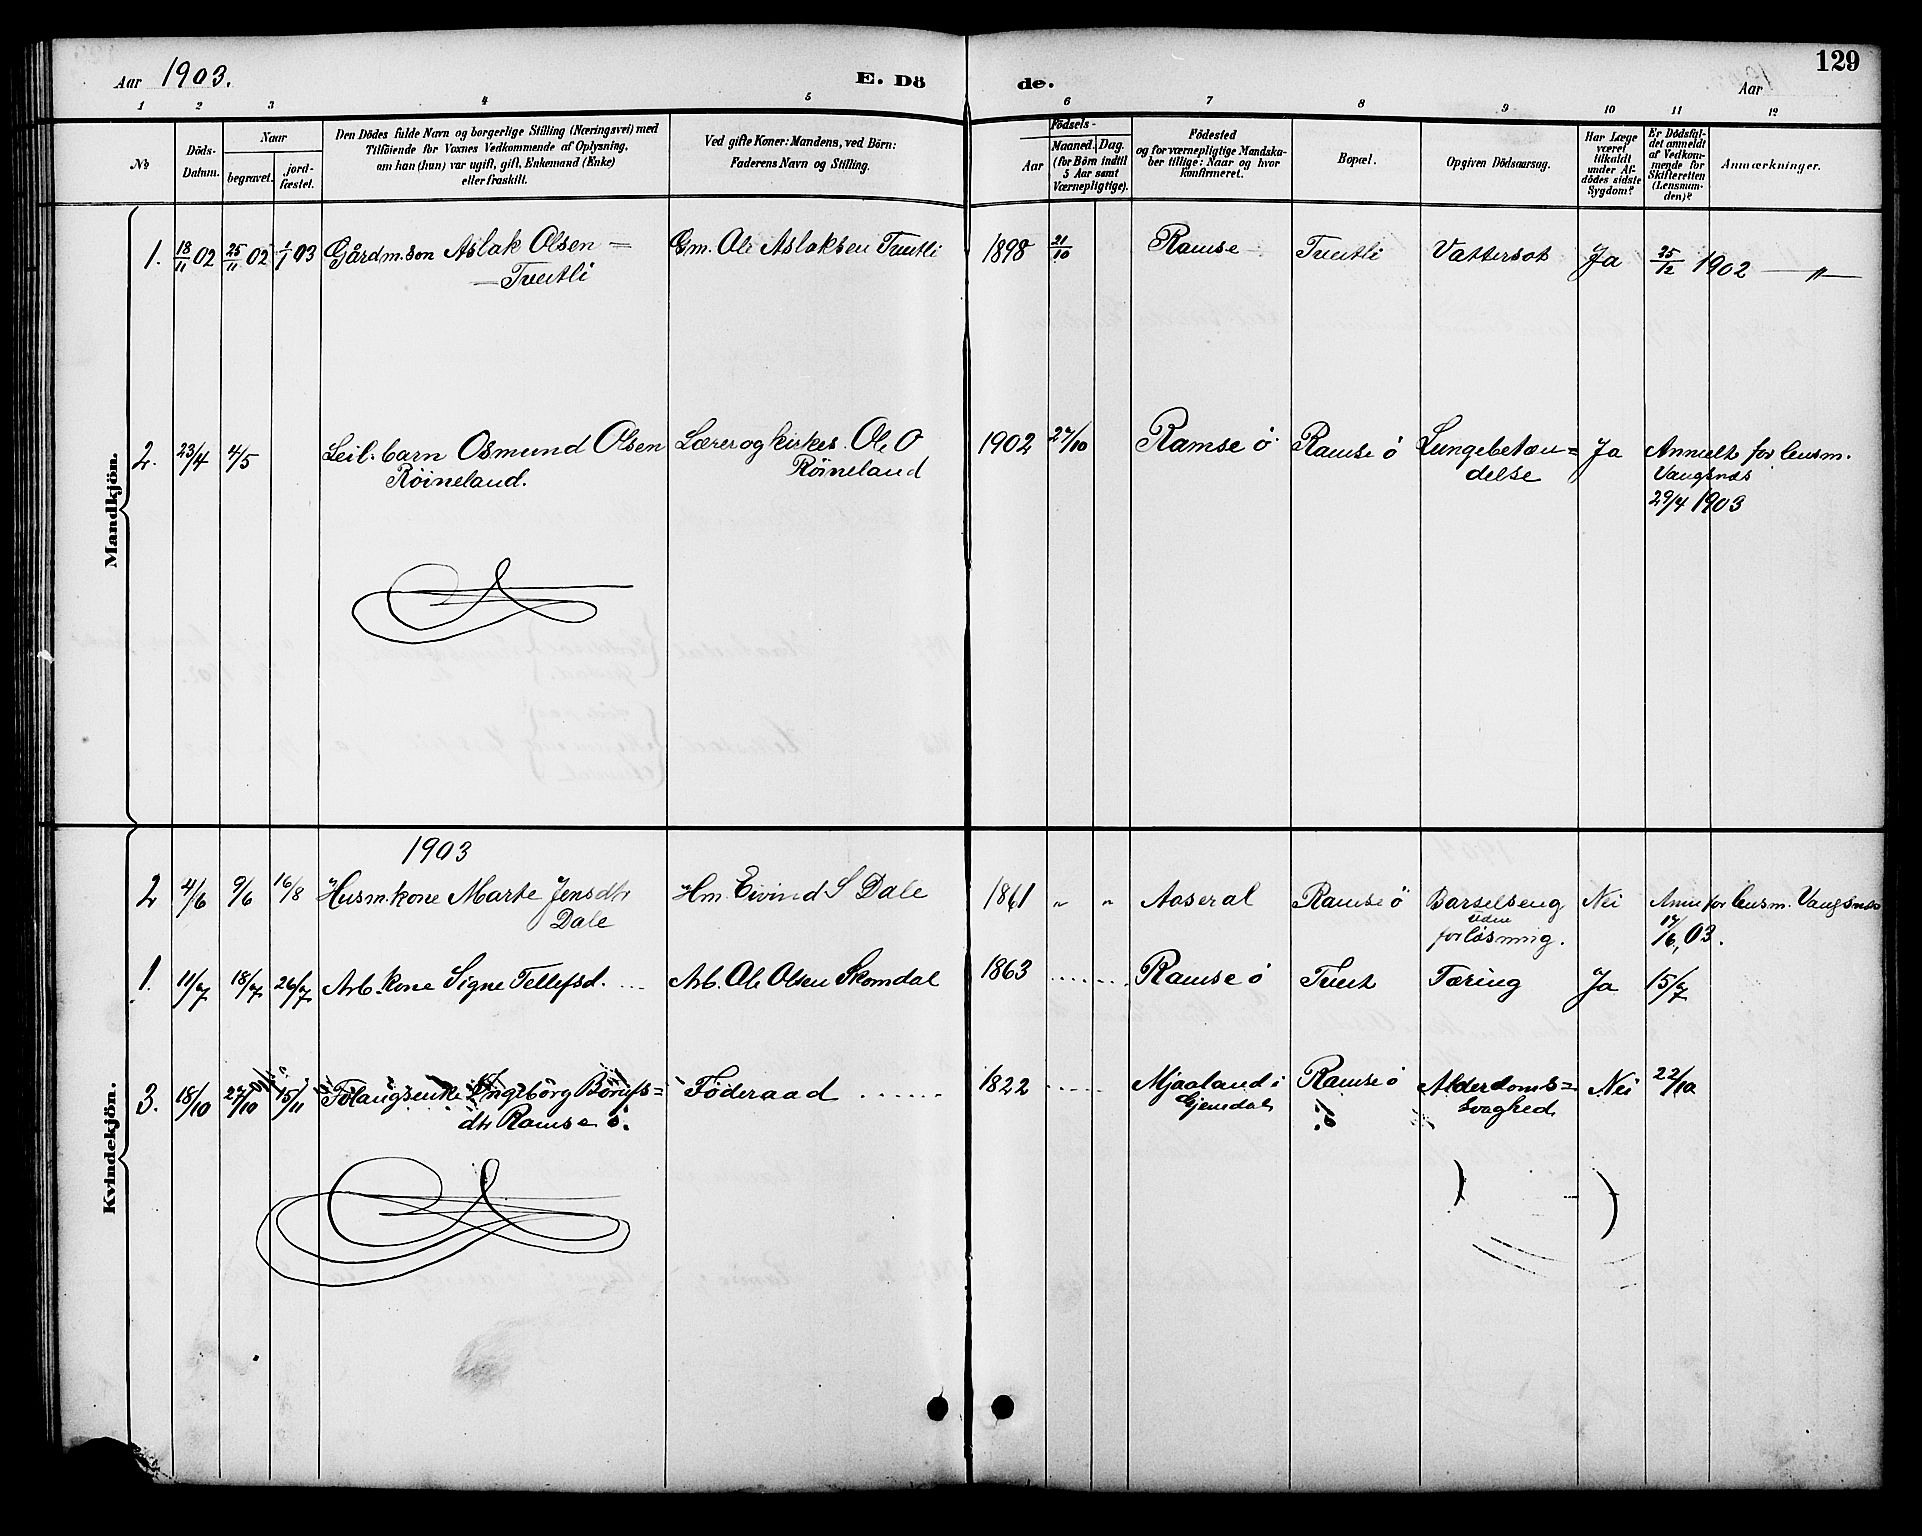 129
Aar 1903.
E. Dö
de.
Aar
1 2 3 4 5 6 7 8 9 10 11 12
No
Döds-
Datum.
Naar
begravet.
jord-
fæstet.
Den Dödes fulde Navn og borgerlige Stilling (Næringsvei) med
Tilföiende for Voxnes Vedkommende af Oplysning,
om han (hun) var ugift, gift, Enkemand (Enke)
eller fraskilt.
Ved gifte Koner: Mandens, ved Börn:
Faderens Navn og Stilling.
Födsels-
Aar
Maaned. Dag.
(for Börn indtil
5 Aar samt
Værnepligtige).
Födested
og for værnepligtige Mandska-
ber tillige: Naar og hvor
konfirmeret.
Bopæl.
Opgiven Dödsaarsag.
Har Læge
været
tilkaldt
under Af-
dödes sidste
Sygdom?
Er Dödsfal-
det anmeldt
af Vedkom-
mende for
Skifteretten
(Lensman-
den)?
Anmærkninger.
Mandkjön.
1. 18/11 02 25/11 02 1/1 03 Gårdm.son Aslak Olsen Gm. Ole Aslaksen Tveitli 1898 21/10 Ramse Tveitli Vattersot Ja 25/12 1902 — " —
— Tveitli
2. 23/4 4/5 Leil. barn Osmund Olsen Lærer og kirkes. Ole O 1902 27/10 Ramse ö Ramse ö Lungebetæn= Ja Anmelt for lensm.
Röineland. Röineland delse Vangsnæs
29/4 1903
Kvindekjön.
1903
2 4/6 9/6 16/8 Husm.kone Marte Jensdtr Hm. Eivind S Dale 1861 " " Aaseral Ramse ö Barselseng Nei Anm for lensm. Vangsnæs
Dale uden 17/6, 03.
forlösning.
1. 11/7 18/7 26/7 Arb. kone Signe Tellefsd. Arb. Ole Olsen Skomdal 1863 Ramse ö Tveit Tæring Ja 15/7
3. 18/10 27/10 15/11 Ingebörg Föderaad 1822 Mjaaland i Ramse ö Alderdoms= Nei 22/10
dtr Ramse ö. Gjevdal svaghed